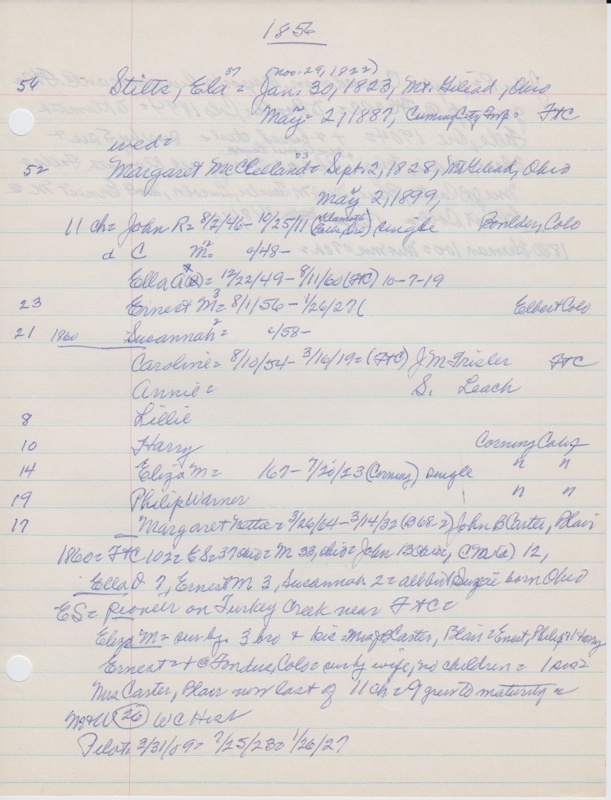 1856
(Nov. 29, 1822)
54 Stitts, Ela = 37 Jan. 30, 1823, Mt. Gilead, Ohio
May 2, 1887, Cuming City Twp = FtC
wed =
52 Margaret McClelland = 33 Sept. 2, 1828, Mt Gilead, Ohio
May 2, 1899,
11 ch = John R = 8/2/46 - 10/25/11 single Boulder, Colo
d C M = 12 c/48 -
Ella = 12/22/49 - 8/11/60 (FtC) 10-7-19
23 Ernest M = 3 8/1/56 - 1/26/27 ( Elbert Colo
21 1860 Susannah = 2 c/58 -
Caroline = 8/10/54 - 3/16/19 = (FtC) J M Trisler FtC
Annie = S. Leach
8 Lillie
10 Harry Corning Calif
14 Eliza M = 167 - 7/20/23 (Corning) single " "
19 Philip Warner " "
17 Margaret Nettie = 3/26/64 - 3/14/32 (B 68-2) John B Carter, Blair
1860 = FtC 102 = ES = 37 Ohio = M 33, Ohio = John 13 Ohio, C M 12,
Ella 7, Ernest M 3, Susannah 2 = all but born Ohio
ES = pioneer on Turkey Creek near FtC =
Eliza M = surby. 3 bro + sis = Mrs J B Carter, Blair = Ernest, Philip + Harry
Ernest = + @ Fondus, Colo = surby wife, no children = 1 sis =
Mrs Carter, Blair now last of 11 ch = 9 grew to maturity =
26 WC Hist
Pilot = 3/31/09 = 7/25/28 = 1/26/27